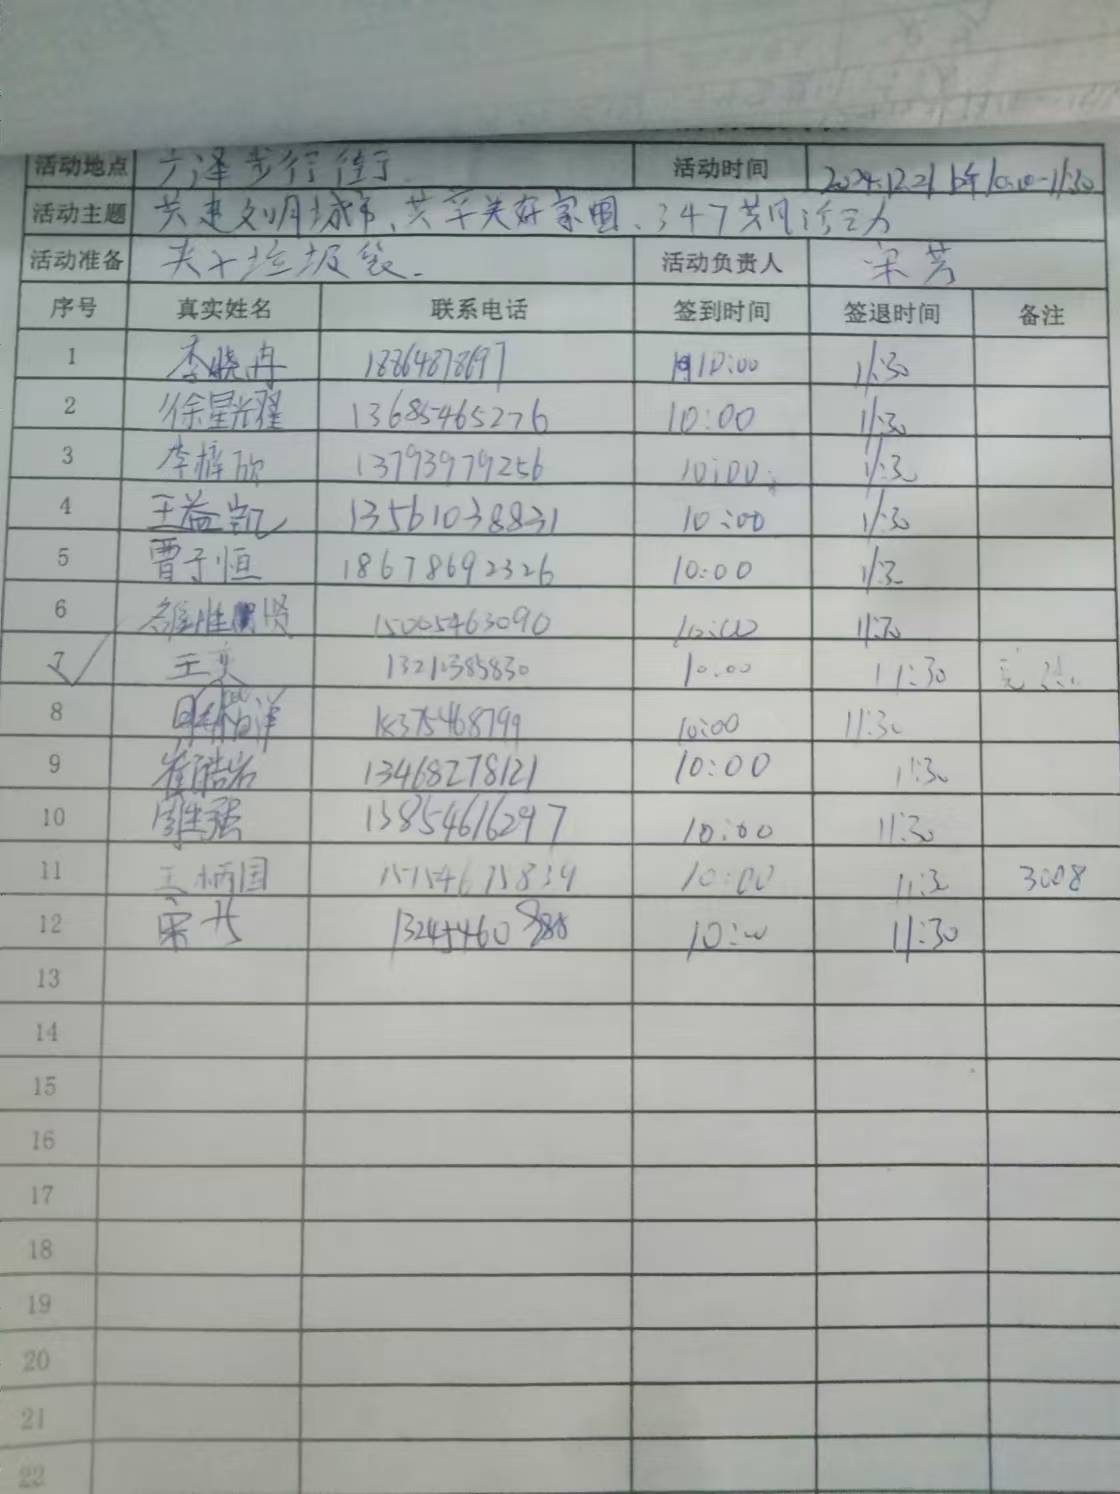 活动地点 广泽步行街 活动时间 2024.12.21 上午10:00-11:30
活动主题 共建文明城市、共享美好家园、347共同活动
活动准备 夹子垃圾袋. 活动负责人 宋芳
序号 真实姓名 联系电话 签到时间 签退时间 备注
1 李晓冉 18864878697 10:00 11:30
2 徐星耀 13685465276 10:00 11:30
3 李梓欣 13793979256 10:00 11:30
4 王益凯 13561038831 10:00 11:30
5 曹子恒 18678692326 10:00 11:30
6 15005463090 10:00 11:30
7 王 13210385830 10:00 11:30
8 18375468799 10:00 11:30
9 崔皓岩 13468278121 10:00 11:30
10 13854616297 10:00 11:30
11 王炳国 15154675834 10:00 11:30 3008
12 宋 10:00 11:30
13
14
15
16
17
18
19
20
21
22